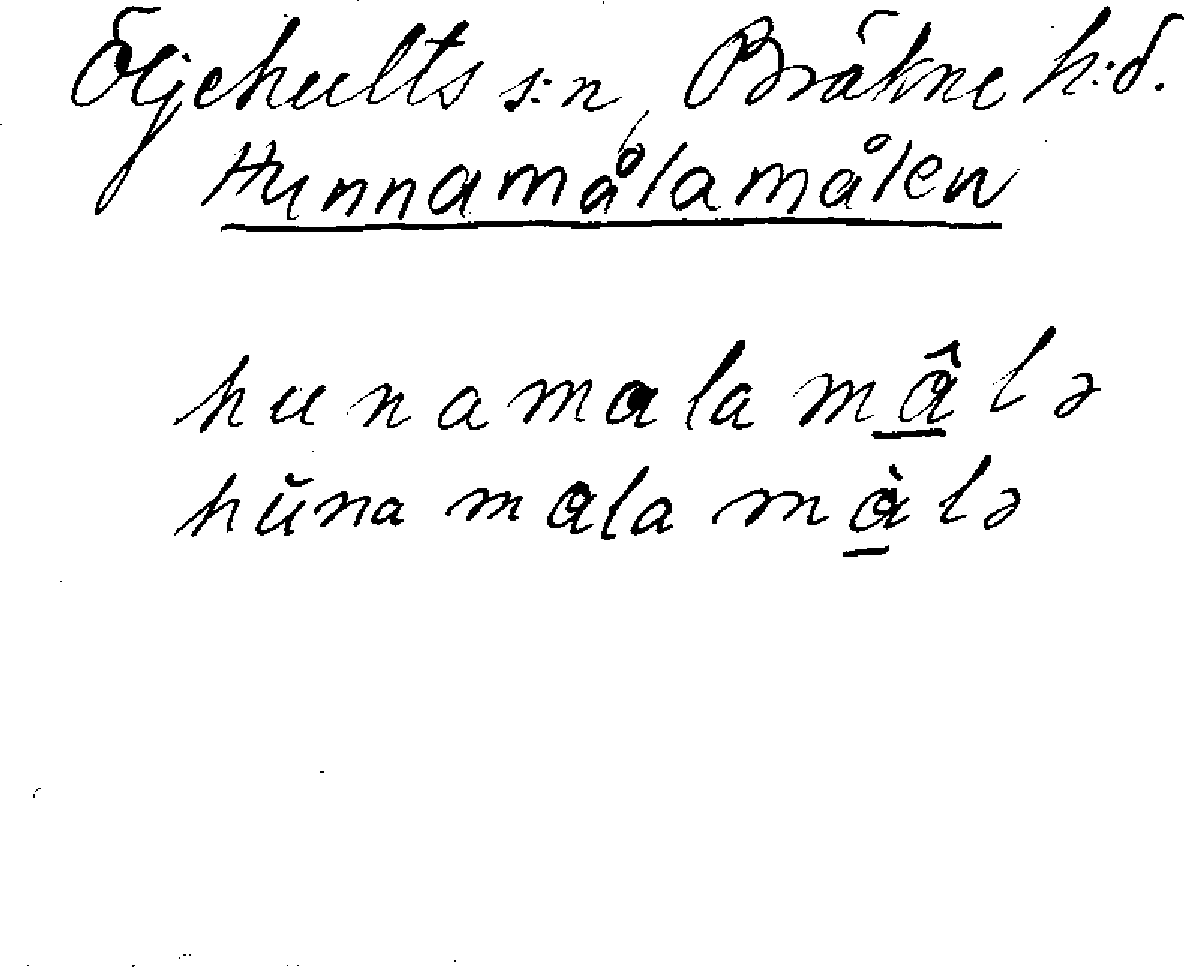 Öljehults s:n, Bräkne h:d.
Hunnamålamålen
hunamalamâlə
hŭnamalamàlə